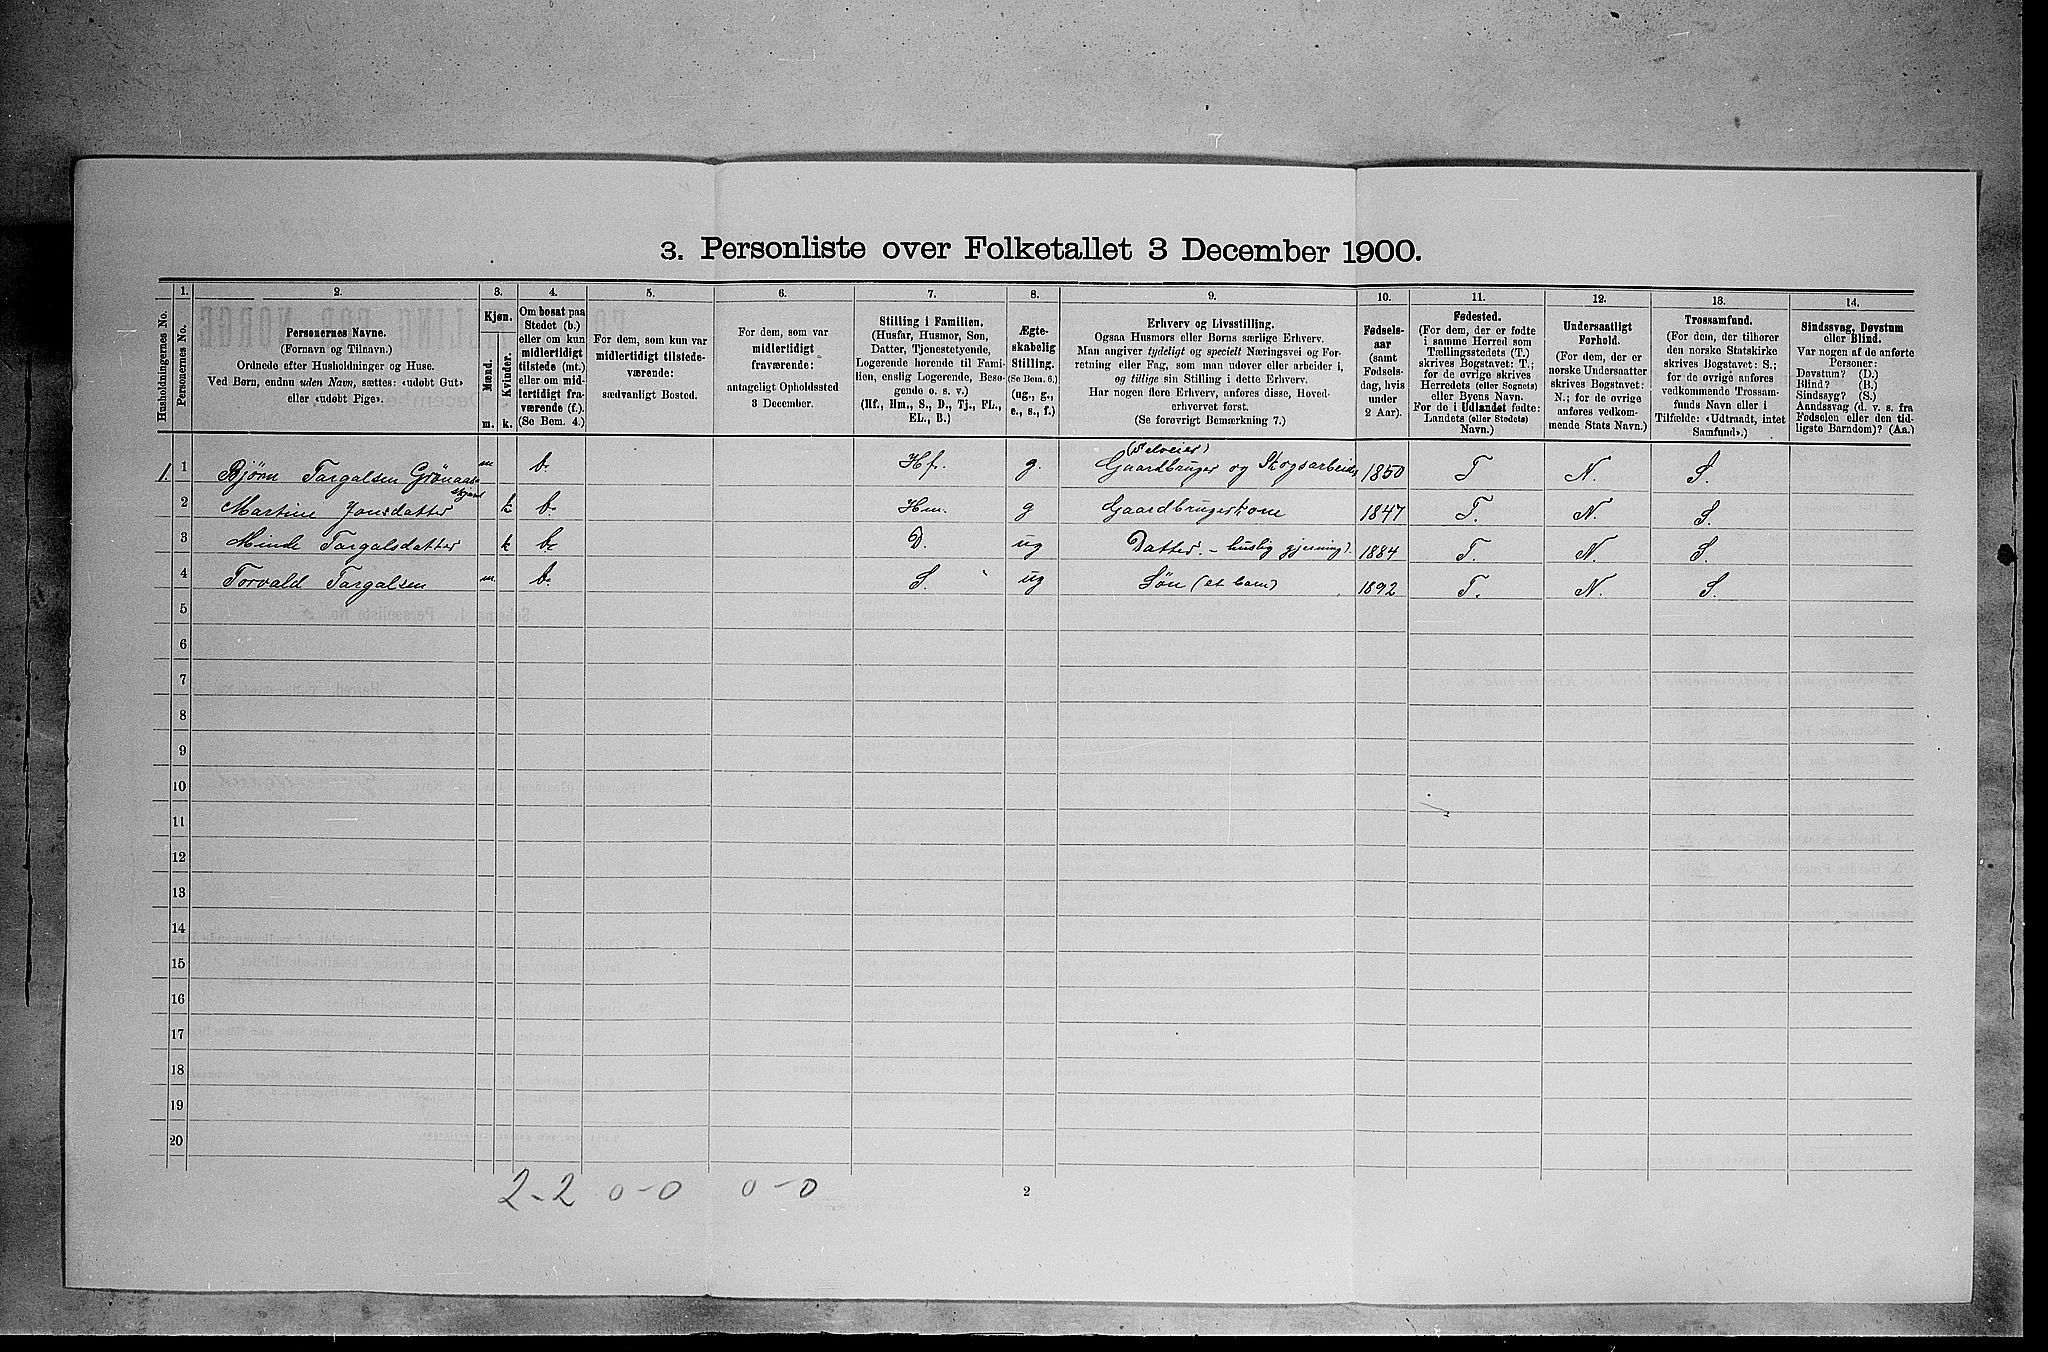 3. Personliste over Folketallet 3 December 1900.
Husholdningernes No.
1.
Personernes No.
2.
Personernes Navne.
(Fornavn og Tilnavn.)
Ordnede efter Husholdninger og Huse.
Ved Børn, endnu uden Navn, sættes: «udøbt Gut»
eller «udøbt Pige».
3.
Kjøn.
Mænd.
Kvinder.
m. k.
4.
Om bosat paa
Stedet (b.)
eller om kun
midlertidigt
tilstede (mt.)
eller om mid-
lertidigt fra-
værende (f.).
(Se Bem. 4.)
5.
For dem, som kun var
midlertidigt tilstede-
værende:
sædvanligt Bosted.
6.
For dem, som var
midlertidigt
fraværende:
antageligt Opholdssted
3 December.
7.
Stilling i Familien.
(Husfar, Husmor, Søn,
Datter, Tjenestetyende,
Logerende hørende til Fami-
lien, enslig Logerende, Besø-
gende o. s. v.)
(Hf., Hm., S., D., Tj., FL.,
EL., B.)
8.
Ægte-
skabelig
Stilling.
(Se Bem. 6.)
(ug., g.,
e., s., f.)
9.
Erhverv og Livsstilling.
Ogsaa Husmors eller Børns særlige Erhverv.
Man angiver tydeligt og specielt Næringsvei og For-
retning eller Fag, som man udøver eller arbeider i,
og tillige sin Stilling i dette Erhverv.
Har nogen flere Erhverv, anføres disse, Hoved-
erhvervet først.
(Se forøvrigt Bemærkning 7.)
10.
Fødsels-
aar
(samt
Fødsels-
dag, hvis
under
2 Aar).
11.
Fødested.
(For dem, der er fødte
i samme Herred som
Tællingsstedets (T.)
skrives Bogstavet: T.;
for de øvrige skrives
Herredets (eller Sognets)
eller Byens Navn.
For de i Udlandet fødte:
Landets (eller Stedets)
Navn.)
12.
Undersaatligt
Forhold.
(For dem, der er
norske Undersaatter
skrives Bogstavet:
N.; for de øvrige
anføres vedkom-
mende Stats Navn.)
13.
Trossamfund.
(For dem, der tilhører
den norske Statskirke
skrives Bogstavet: S.;
for de øvrige anføres
vedkommende Trossam-
funds Navn eller i
Tilfælde: «Udtraadt, intet
Samfund».)
14.
Sindssvag, Døvstum
eller Blind.
Var nogen af de anførte
Personer:
Døvstum? (D.)
Blind? (B.)
Sindssyg? (S.)
Aandssvag (d. v. s. fra
Fødselen eller den tid-
ligste Barndom)? (Aa.)
(Selveier)
1. 1 Bjørn Targalsen Grønaas- m b. Hf. g. Gaardbruger og Skogsarbeider 1850 T N. S.
2 Martine Jonsdatter k b. Hm. g Gaardbrugerkone 1847 T. N. S.
3 Minde Targalsdatter k b. D. ug Datter. - huslig gjerning). 1884 T. N S.
4 Torvald Targalsen m b. S. ug Søn (et barn) 1892 T. N. S.
5
6
7
8
9
10
11
12
13
14
15
16
17
18
19
20
2-2 0-0 0-0
2